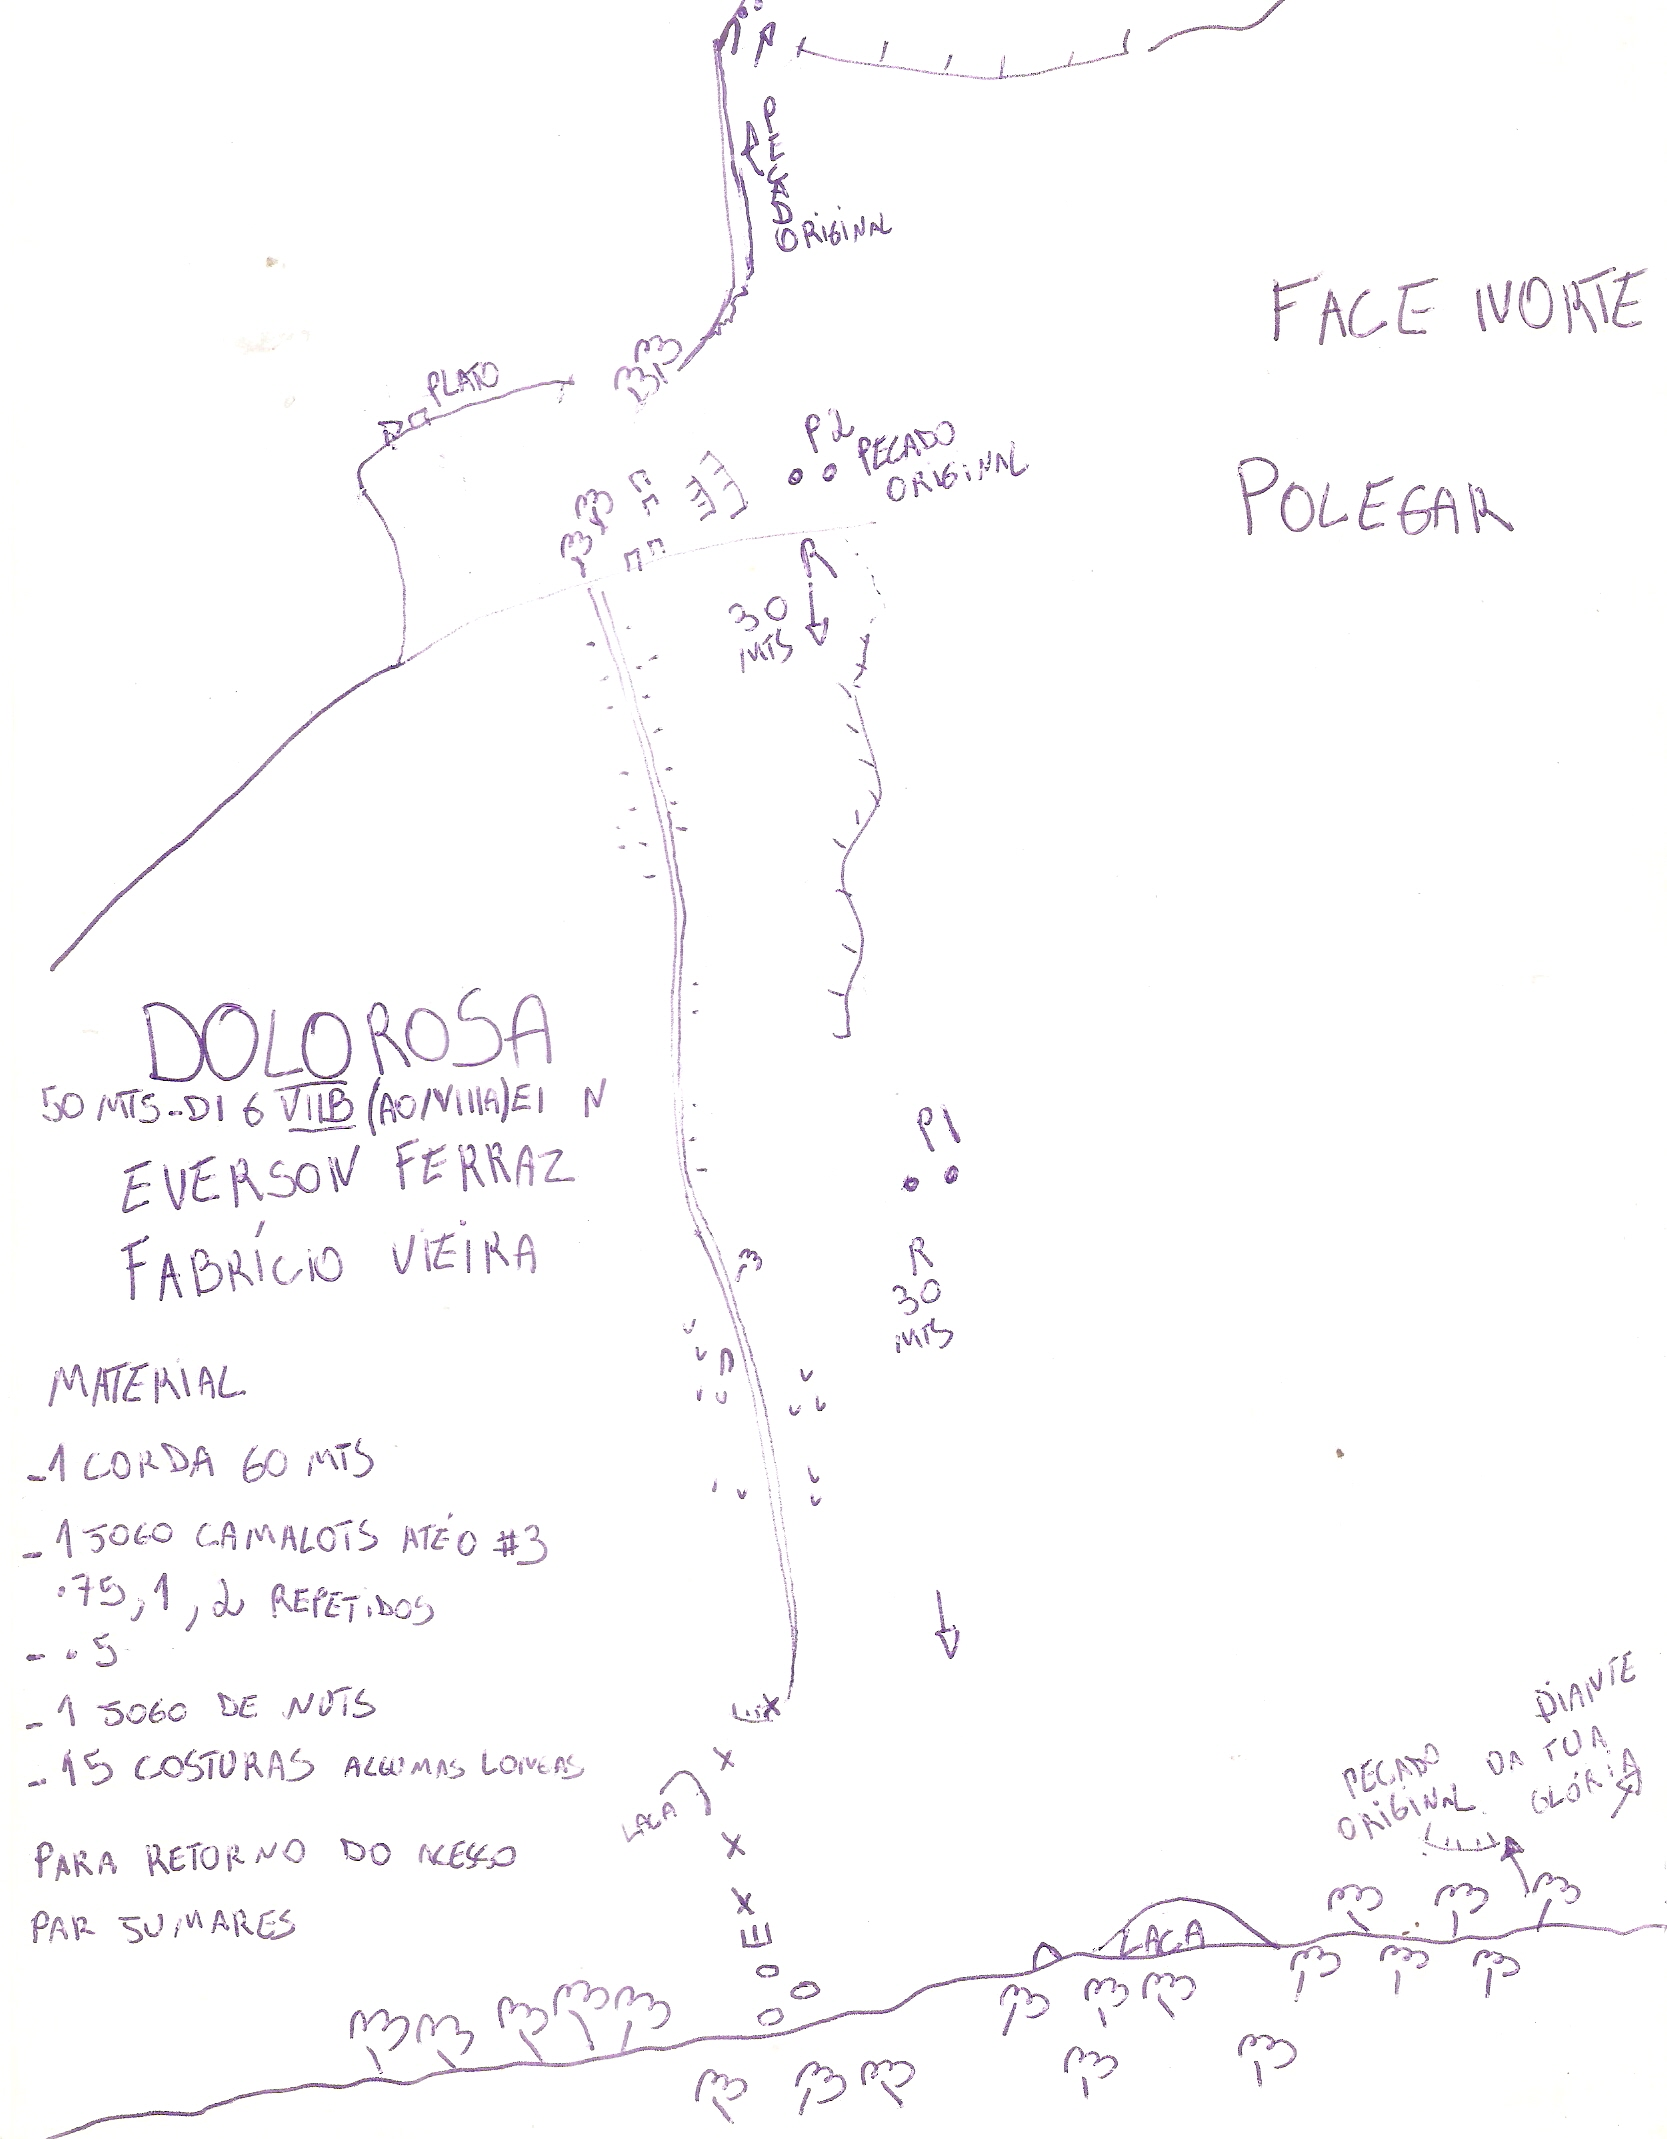 PECADO
ORIGINAL
FACE NORTE
PLATO
P2
PECADO
ORIGINAL
POLEGAR
R
30
MTS
DOLOROSA
50 MTS-D1 6 VIIB (A0/VIIIA) E1 N
EVERSON FERRAZ
FABRÍCIO VIEIRA
P1
R
30
MTS
MATERIAL
-1 CORDA 60 MTS
-1 JOGO CAMALOTS ATÉ O #3
.75, 1, 2 REPETIDOS
- .5
-1 JOGO DE NUTS
-15 COSTURAS ALGUMAS LONGAS
PARA RETORNO DO ACESSO
PAR JUMARES
E
LACA
DIANTE
DA TUA
GLÓRIA
PECADO
ORIGINAL
E
LACA